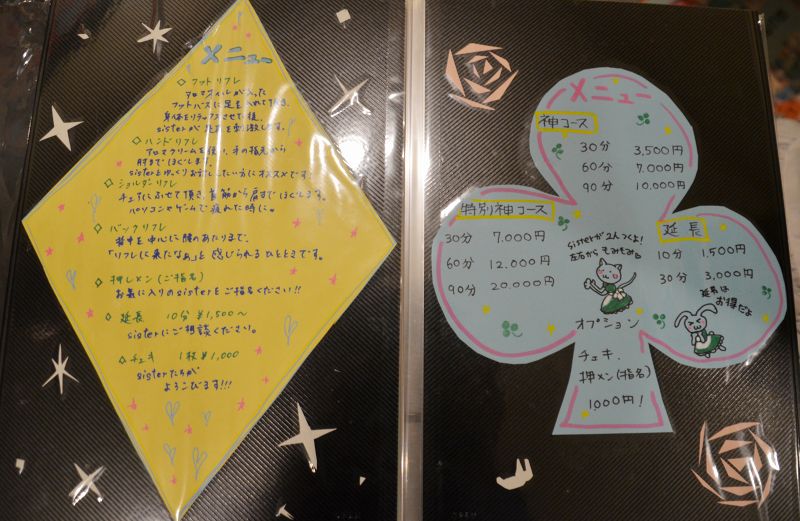 メニュー
◇ フットリフレ
アロマオイルが入った
フットバスに足を入れて頂き、
身体をリラックスさせて後、
sisterが 足裏を刺激します。
◇ ハンドリフレ
アロマクリームを使い、手の指先から
肘までほぐします。
sisterとゆっくりお話ししたい方にオススメです!
◇ ショルダーリフレ
チェアにふせて頂き、首筋から肩までほぐします。
パソコンやゲームで疲れた時に。
◇ バックリフレ
背中を中心に腰のあたりまで、
「リフレに来たなぁ」と感じられるひとときです。
◇ 押しメン(ご指名)
お気に入りのsisterをご指名ください!!
◇ 延長 10分 ¥1,500~
sisterにご相談ください。
◇ チェキ 1枚 ¥1,000
sisterたちが
よろこびます!!!
メニュー
神コース
30分 3,500円
60分 7,000円
90分 10,000円
特別神コース
30分 7,000円
60分 12,000円
90分 20,000円
sisterが2人つくよ!
左右から もみもみ
延長
10分 1,500円
30分 3,000円
延長は
お得だよ
オプション
チェキ、
押メン(指名)
1,000円!